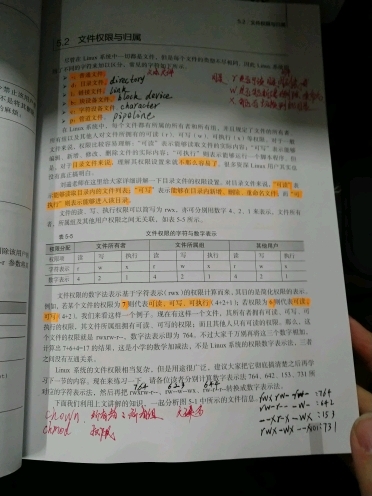 5.2 文件权限与归属
5.2 文件权限与归属
尽管在 Linux 系统中一切都是文件,但是每个文件的类型不尽相同,因此 Linux 系统使
用了不同的字符来加以区分,常见的字符如下所示。
-:普通文件。
d:目录文件。 directory
l:链接文件。 link
b:块设备文件。 block device
c:字符设备文件。 character
p:管道文件。 pipeline
在 Linux 系统中,每个文件都有所属的所有者和所有组,并且规定了文件的所有者、
所有组以及其他人对文件所拥有的可读(r)、可写(w)、可执行(x)等权限。对于一般
文件来说,权限比较容易理解:“可读”表示能够读取文件的实际内容;“可写”表示能够
编辑、新增、修改、删除文件的实际内容;“可执行”则表示能够运行一个脚本程序。但
是,对于目录文件来说,理解其权限设置来就不那么容易了。很多资深 Linux 用户其实也
没有真正搞明白。
刘遄老师在这里给大家详细讲解一下目录文件的权限设置。对目录文件来说,“可读”表
示能够读取目录内的文件列表;“可写”表示能够在目录内新增、删除、重命名文件;而“可
执行”则表示能够进入该目录。
文件的读、写、执行权限可以简写为 rwx,亦可分别用数字 4、2、1 来表示,文件所有
者,所属组及其他用户权限之间无关联,如表 5-5 所示。
表 5-5 文件权限的字符与数字表示
权限分配 文件所有者 文件所属组 其他用户
权限项 读 写 执行 读 写 执行 读 写 执行
字符表示 r w x r w x r w x
数字表示 4 2 1 4 2 1 4 2 1
文件权限的数字法表示基于字符表示(rwx)的权限计算而来,其目的是简化权限的表示。
例如,若某个文件的权限为 7 则代表可读、可写、可执行(4+2+1);若权限为 6 则代表可读、
可写(4+2)。我们来看这样一个例子。现在有这样一个文件,其所有者拥有可读、可写、可
执行的权限,其文件所属组拥有可读、可写的权限;而且其他人只有可读的权限。那么,这
个文件的权限就是 rwxrw-r--,数字法表示即为 764。不过大家千万别再将这三个数字相加,
计算出 7+6+4=17 的结果,这是小学的数学加减法,不是 Linux 系统的权限数字表示法,三者
之间没有互通关系。
Linux 系统的文件权限相当复杂,但是用途很广泛,建议大家把它彻底搞清楚之后再学
习下一节的内容。现在来练习一下,请各位读者分别计算数字表示法 764、642、153、731 所
对应的字符表示法,然后再把 rwxrw-r--、rw--w--wx、rw-r--r--转换成数字表示法。
下面我们利用上文讲解的知识,一起分析图 5-1 中所示的文件信息。
764 623 644
rwx rw- r-- :764
rw- r-- -w- :642
--x r-x -wx :153
rwx -wx --x :731
chown
chmod